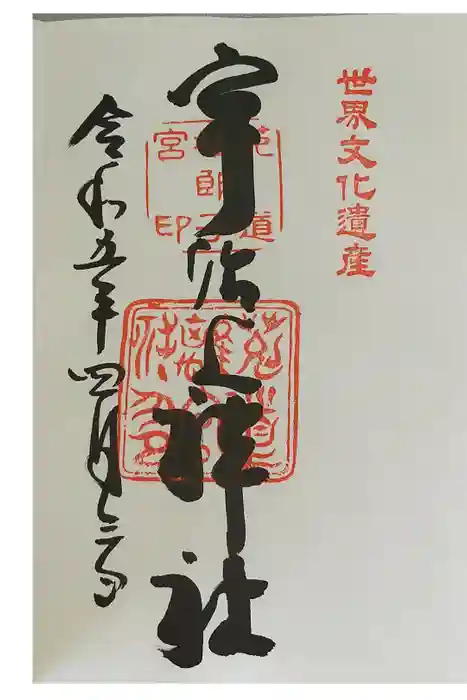 世界文化遺産
宇治上神社
菟道
稚郎子
宮印
令和五年四月三日